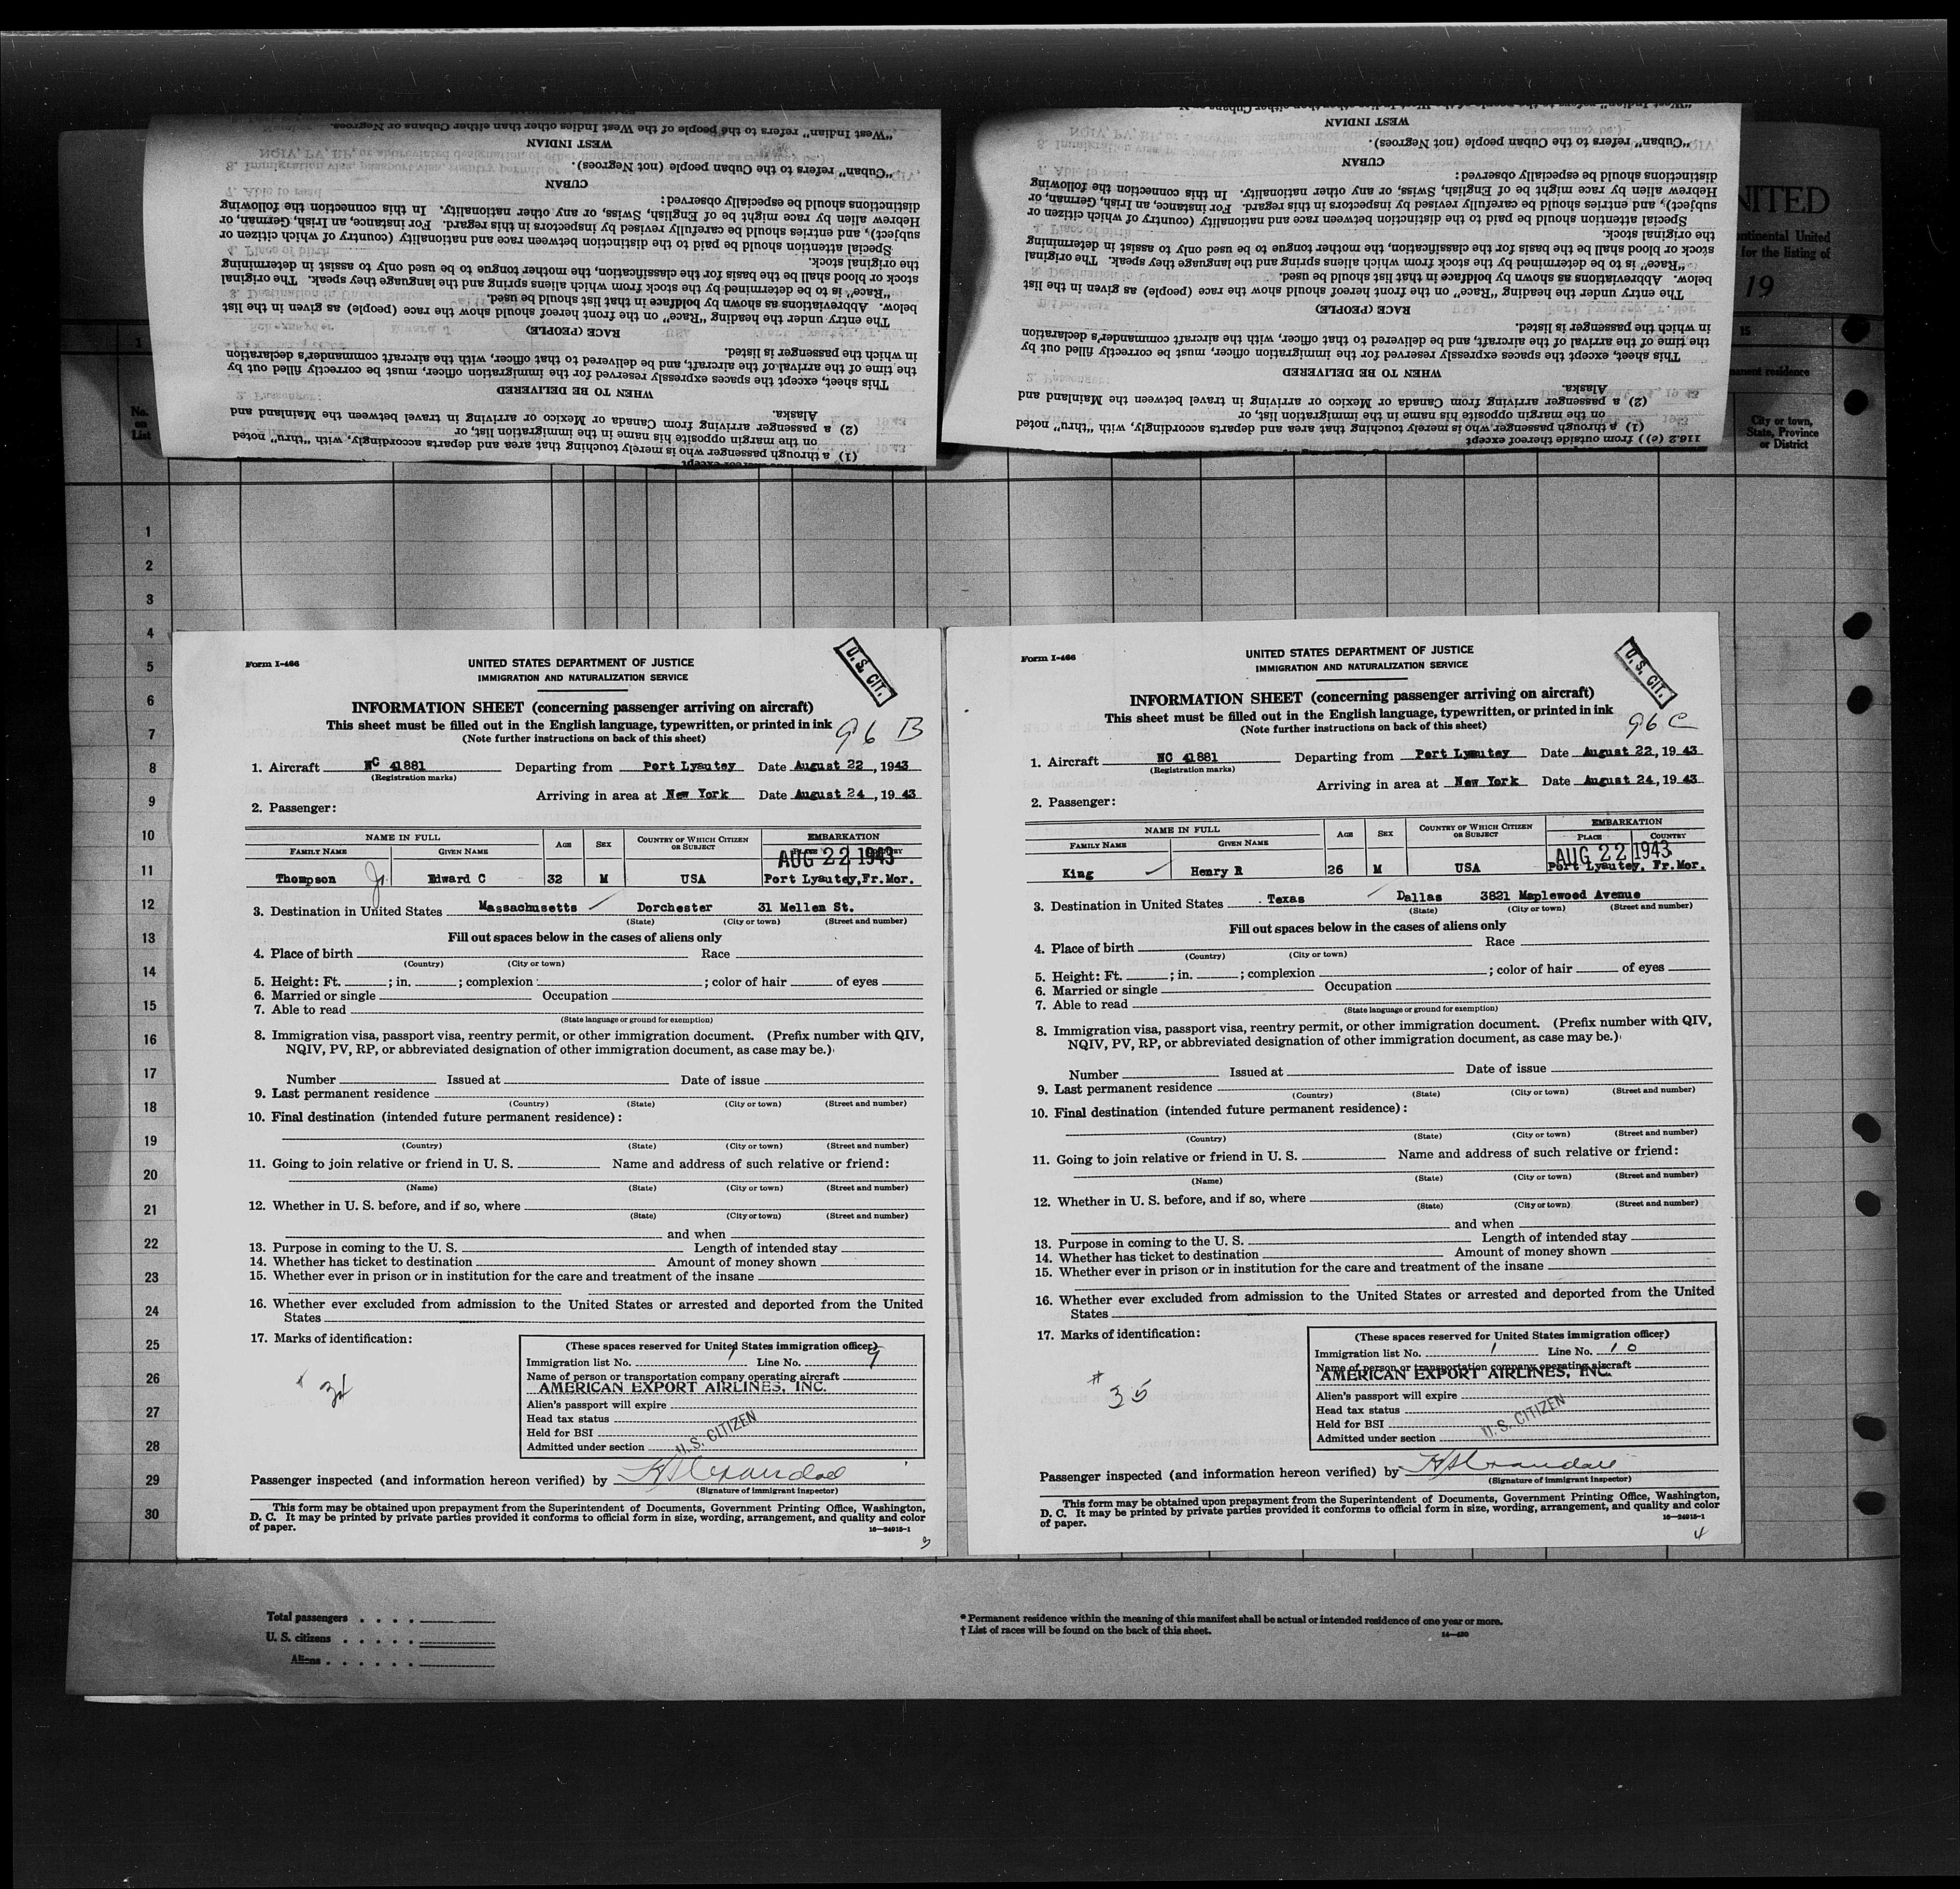 "West Indian" refers to the people of the West Indies other than either Cubans or Negroes.
WEST INDIAN
"Cuban" refers to the Cuban people (not Negroes).
CUBAN
distinctions should be especially observed:
Hebrew alien by race might be of English, Swiss, or any other nationality. In this connection the following
subject), and entries should be carefully revised by inspectors in this regard. For instance, an Irish, German, or
Special attention should be paid to the distinction between race and nationality (country of which citizen or
the original stock.
stock or blood shall be the basis for the classification, the mother tongue to be used only to assist in determining
"Race" is to be determined by the stock from which aliens spring and the language they speak. The original
below. Abbreviations as shown by boldface in that list should be used.
The entry under the heading "Race" on the front hereof should show the race (people) as given in the list
RACE (PEOPLE)
in which the passenger is listed.
the time of the arrival of the aircraft, and be delivered to that officer, with the aircraft commander's declaration
This sheet, except the spaces expressly reserved for the immigration officer, must be correctly filled out by
WHEN TO BE DELIVERED
Alaska.
(2) a passenger arriving from Canada or Mexico or arriving in travel between the Mainland and
on the margin opposite his name in the immigration list, or
(1) a through passenger who is merely touching that area and departs accordingly, with "thru" noted
WEST INDIAN
"Cuban" refers to the Cuban people (not Negroes).
CUBAN
distinctions should be especially observed:
Hebrew alien by race might be of English, Swiss, or any other nationality. In this connection the following
subject), and entries should be carefully revised by inspectors in this regard. For instance, an Irish, German, or
Special attention should be paid to the distinction between race and nationality (country of which citizen or
the original stock.
stock or blood shall be the basis for the classification, the mother tongue to be used only to assist in determining
"Race" is to be determined by the stock from which aliens spring and the language they speak. The original
below. Abbreviations as shown by boldface in that list should be used.
The entry under the heading "Race" on the front hereof should show the race (people) as given in the list
RACE (PEOPLE)
in which the passenger is listed.
the time of the arrival of the aircraft, and be delivered to that officer, with the aircraft commander's declaration
This sheet, except the spaces expressly reserved for the immigration officer, must be correctly filled out by
WHEN TO BE DELIVERED
Alaska.
(2) a passenger arriving from Canada or Mexico or arriving in travel between the Mainland and
on the margin opposite his name in the immigration list, or
(1) a through passenger who is merely touching that area and departs accordingly, with "thru" noted
116.2 (c)) from outside thereof except
NITED
ntinental United
for the listing of
19
15
1
No.
on
List
City or town,
State, Province
or District
1
2
3
4
5
6
7
8
9
10
11
12
13
14
15
16
17
18
19
20
21
22
23
24
25
26
27
28
29
30
Form I-466
UNITED STATES DEPARTMENT OF JUSTICE
IMMIGRATION AND NATURALIZATION SERVICE
U. S. CIT.
INFORMATION SHEET (concerning passenger arriving on aircraft)
This sheet must be filled out in the English language, typewritten, or printed in ink
(Note further instructions on back of this sheet)
96 B
1. Aircraft NC 41881 Departing from Port Lyautey Date August 22, 1943
(Registration marks)
Arriving in area at New York Date August 24, 1943
2. Passenger:
NAME IN FULL AGE SEX COUNTRY OF WHICH CITIZEN OR SUBJECT EMBARKATION
FAMILY NAME GIVEN NAME PLACE COUNTRY
AUG 22 1943
Thompson Jr. Edward C 32 M USA Port Lyautey, Fr.Mor.
3. Destination in United States Massachusetts Dorchester 31 Mellen St.
(State) (City or town) (Street and number)
Fill out spaces below in the cases of aliens only
4. Place of birth Race
(Country) (City or town)
5. Height: Ft. ; in. ; complexion ; color of hair of eyes
6. Married or single Occupation
7. Able to read
(State language or ground for exemption)
8. Immigration visa, passport visa, reentry permit, or other immigration document. (Prefix number with QIV,
NQIV, PV, RP, or abbreviated designation of other immigration document, as case may be.)
Number Issued at Date of issue
9. Last permanent residence
(Country) (State) (City or town) (Street and number)
10. Final destination (intended future permanent residence):
(Country) (State) (City or town) (Street and number)
11. Going to join relative or friend in U. S. Name and address of such relative or friend:
(Name) (State) (City or town) (Street and number)
12. Whether in U. S. before, and if so, where
(State) (City or town) (Street and number)
and when
13. Purpose in coming to the U. S. Length of intended stay
14. Whether has ticket to destination Amount of money shown
15. Whether ever in prison or in institution for the care and treatment of the insane
16. Whether ever excluded from admission to the United States or arrested and deported from the United
States
17. Marks of identification:
(These spaces reserved for United States immigration officer)
Immigration list No. 1 Line No. 9
Name of person or transportation company operating aircraft
AMERICAN EXPORT AIRLINES, INC.
Alien's passport will expire
Head tax status
Held for BSI
Admitted under section
U. S. CITIZEN
Passenger inspected (and information hereon verified) by
(Signature of immigrant inspector)
This form may be obtained upon prepayment from the Superintendent of Documents, Government Printing Office, Washington,
D. C. It may be printed by private parties provided it conforms to official form in size, wording, arrangement, and quality and color
of paper.
16—24915-1
3
Form I-466
UNITED STATES DEPARTMENT OF JUSTICE
IMMIGRATION AND NATURALIZATION SERVICE
U. S. CIT.
INFORMATION SHEET (concerning passenger arriving on aircraft)
This sheet must be filled out in the English language, typewritten, or printed in ink
(Note further instructions on back of this sheet)
96 C
1. Aircraft NC 41881 Departing from Port Lyautey Date August 22, 1943
(Registration marks)
Arriving in area at New York Date August 24, 1943
2. Passenger:
NAME IN FULL AGE SEX COUNTRY OF WHICH CITIZEN OR SUBJECT EMBARKATION
FAMILY NAME GIVEN NAME PLACE COUNTRY
AUG 22 1943
King Henry R 26 M USA Port Lyautey, Fr.Mor.
3. Destination in United States Texas Dallas 3821 Maplewood Avenue
(State) (City or town) (Street and number)
Fill out spaces below in the cases of aliens only
4. Place of birth Race
(Country) (City or town)
5. Height: Ft. ; in. ; complexion ; color of hair of eyes
6. Married or single Occupation
7. Able to read
(State language or ground for exemption)
8. Immigration visa, passport visa, reentry permit, or other immigration document. (Prefix number with QIV,
NQIV, PV, RP, or abbreviated designation of other immigration document, as case may be.)
Number Issued at Date of issue
9. Last permanent residence
(Country) (State) (City or town) (Street and number)
10. Final destination (intended future permanent residence):
(Country) (State) (City or town) (Street and number)
11. Going to join relative or friend in U. S. Name and address of such relative or friend:
(Name) (State) (City or town) (Street and number)
12. Whether in U. S. before, and if so, where
(State) (City or town) (Street and number)
and when
13. Purpose in coming to the U. S. Length of intended stay
14. Whether has ticket to destination Amount of money shown
15. Whether ever in prison or in institution for the care and treatment of the insane
16. Whether ever excluded from admission to the United States or arrested and deported from the United
States
17. Marks of identification:
# 35
(These spaces reserved for United States immigration officer)
Immigration list No. 1 Line No. 10
Name of person or transportation company operating aircraft
AMERICAN EXPORT AIRLINES, INC.
Alien's passport will expire
Head tax status
Held for BSI
Admitted under section
U. S. CITIZEN
Passenger inspected (and information hereon verified) by
(Signature of immigrant inspector)
This form may be obtained upon prepayment from the Superintendent of Documents, Government Printing Office, Washington,
D. C. It may be printed by private parties provided it conforms to official form in size, wording, arrangement, and quality and color
of paper.
16—24915-1
4
Total passengers
U. S. citizens
Aliens
* Permanent residence within the meaning of this manifest shall be actual or intended residence of one year or more.
† List of races will be found on the back of this sheet.